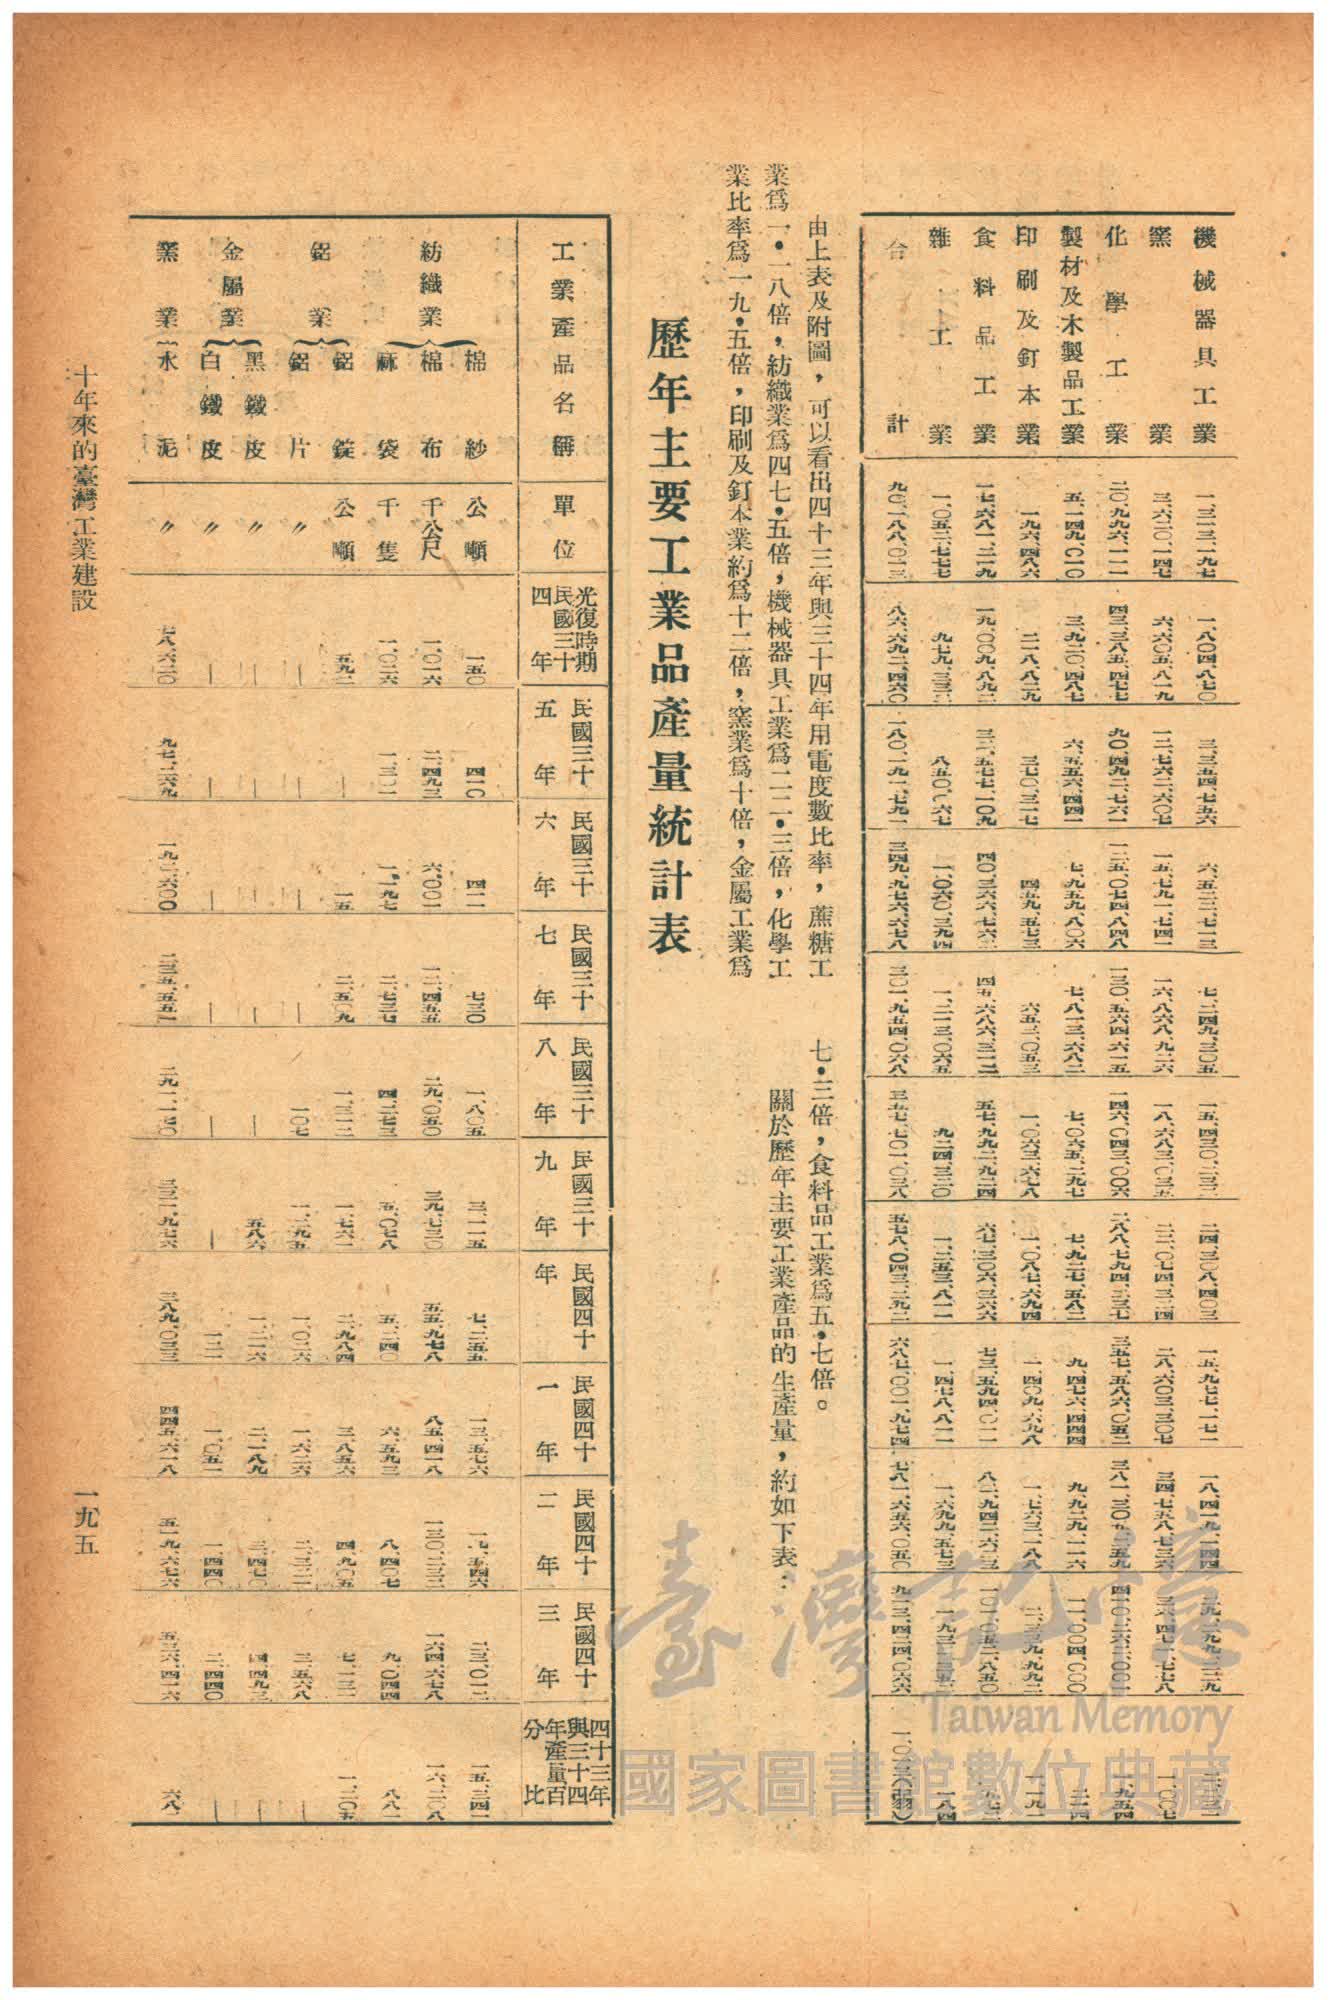 機械器具工業 一、三一三、一九七 一、八〇四、八七〇 三、三五四、七五六 六、五二三、七一三 七、二四九、三〇五 一五、四三〇、二三二 二四、三〇八、四〇三 一五、九七七、一七一 一八、四一九、一四四
窯業 三、六二〇、一四七 六、六〇五、八一九 一二、七六二、六〇七 一五、七九一、七四一 一六、八六八、九二六 一八、六八三、〇三五 二八、六〇三、三〇七 三四、七五八、七三六
化學工業 二〇、九九六、一一一 四三、三八五、四七七 九〇、四九二、七六一 一二五、〇七四、八四八 一三〇、五六四、六一五 一四六、〇四三、〇〇六 二八八、七九四、三三七 三五七、五八六、〇五二
製材及木製品工業 五、一四九、〇一〇 三、九二〇、四八七 六、五五六、四四一 七、九五九、八〇六 七、八一三、六八二 七、〇六五、二九七 七、九二七、五八二 九、四七六、四四四 九、九二九、一一六 一一、〇〇四、〇〇〇
印刷及釘本業 一九六、四八六 二一八、八二九 三七〇、三一七 四五九、五七三 六五二、〇五三 一、〇六三、六七八 一、〇八七、六九四 一、四〇九、六九八 一、七六三、一八八
食料品工業 一七、六八一、三一九 一九、〇〇九、八九二 三三、五七七、一〇九 四〇、三六六、七六二 四五、六八六、三一二 五七、九九二、九二四 六七、三〇六、三六六 七三、五九四、〇一一 八二、九四二、六二三
雜工業 一、〇五二、七七七 九七九、三三二 八五〇、〇六七 一、〇六〇、三九四 一、二一三、〇六五 九二四、三二〇 一、二五三、八一一 一、四七八、八一一 一、六九九、五七三
合計 九〇、一八八、〇一三 八六、六九二、四六〇 一八〇、一九一、七九一 三四九、九七六、六七八 三〇一、九五四、〇六八 三五七、七〇一、〇三八 五七八、〇四三、二九二 六八七、〇〇一、九七四 七八一、六五六、〇五〇 九一三、四二四、〇六六
由上表及附圖，可以看出四十三年與三十四年用電度數比率，蔗糖工
業爲一・一八倍，紡織業爲四七・五倍，機械器具工業爲二二・三倍，化學工
業比率爲一九・五倍，印刷及釘本業約爲十二倍，窯業爲十倍，金屬工業爲
七・三倍，食料品工業爲五・七倍。
關於歷年主要工業產品的生產量，約如下表：
歷年主要工業品產量統計表
工業產品名稱 單位 光復時期民國三十四年 民國三十五年 民國三十六年 民國三十七年 民國三十八年 民國三十九年 民國四十年 民國四十一年 民國四十二年 民國四十三年 四十三年與三十四年產量百分比
紡織業 棉紗 公噸 一五〇 四一〇 四一一 七三〇 一、八〇五 三、一一五 七、二五五 一三、五七六 一九、五四六 二三、〇一二 一五、三四一
棉布 千公尺 一、〇一六 二、四九三 六、〇〇一 一二、四五五 二九、〇五〇 三九、七三〇 五五、九七八 八五、四一八 一三〇、二三三 一六四、六七八 一六、二〇八
麻袋 千隻 一、〇二六 一、三一一 一、一九七 二、七三七 四、二七三 五、〇七八 五、二四〇 六、五九三 八、四〇七 九、〇四四 八八一
鋁業 鋁錠 公噸 五九二 — 一五 二、五〇九 一、三一二 一、七六一 二、九八四 三、八五六 四、九〇五 七、一三二 一、二〇五
鋁片 〃 — — — — 一〇七 一、二九五 一、〇二六 一、六二六 二、三三一 三、五六八
金屬業 黑鐵皮 〃 — — — — — 五八六 一、二一六 二、一八九 三、四七〇 四、四九三
白鐵皮 〃 — — — — — — 一二一 一、〇五一 一、四四〇 二、四四〇
窯業 水泥 〃 七八、六二〇 九七、二六九 一九二、六〇〇 二三五、五五一 二九一、一七〇 三三一、九七六 三八九、〇三三 四四五、六一八 五一九、六七六 五三六、四一六 六八一
十年來的臺灣工業建設
一九五
臺灣記憶
Taiwan Memory
國家圖書館數位典藏